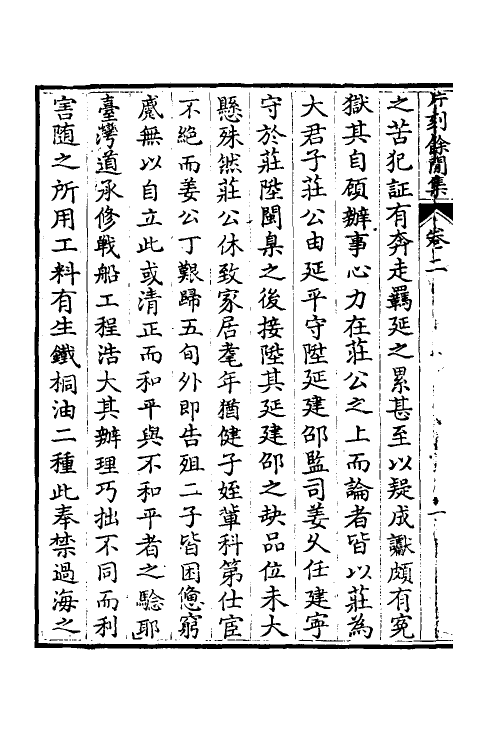 片刻餘閒集
卷二
一
之苦犯証有奔走羈延之累甚至以疑成讞頗有寃
獄其自頋辦事心力在莊公之上而論者皆以莊為
大君子莊公由延平守陞延建邵監司姜乆任建寧
守於莊陞閩臬之後接陞其延建邵之缺品位未大
懸殊然莊公休致家居耄年猶健子姪軰科第仕宦
不絶而姜公丁艱歸五旬外即告殂二子皆困憊窮
蹙無以自立此或清正而和平與不和平者之騐耶
臺灣道承修戰船工程浩大其辦理巧拙不同而利
害随之所用工料有生鐵桐油二種此奉禁過海之